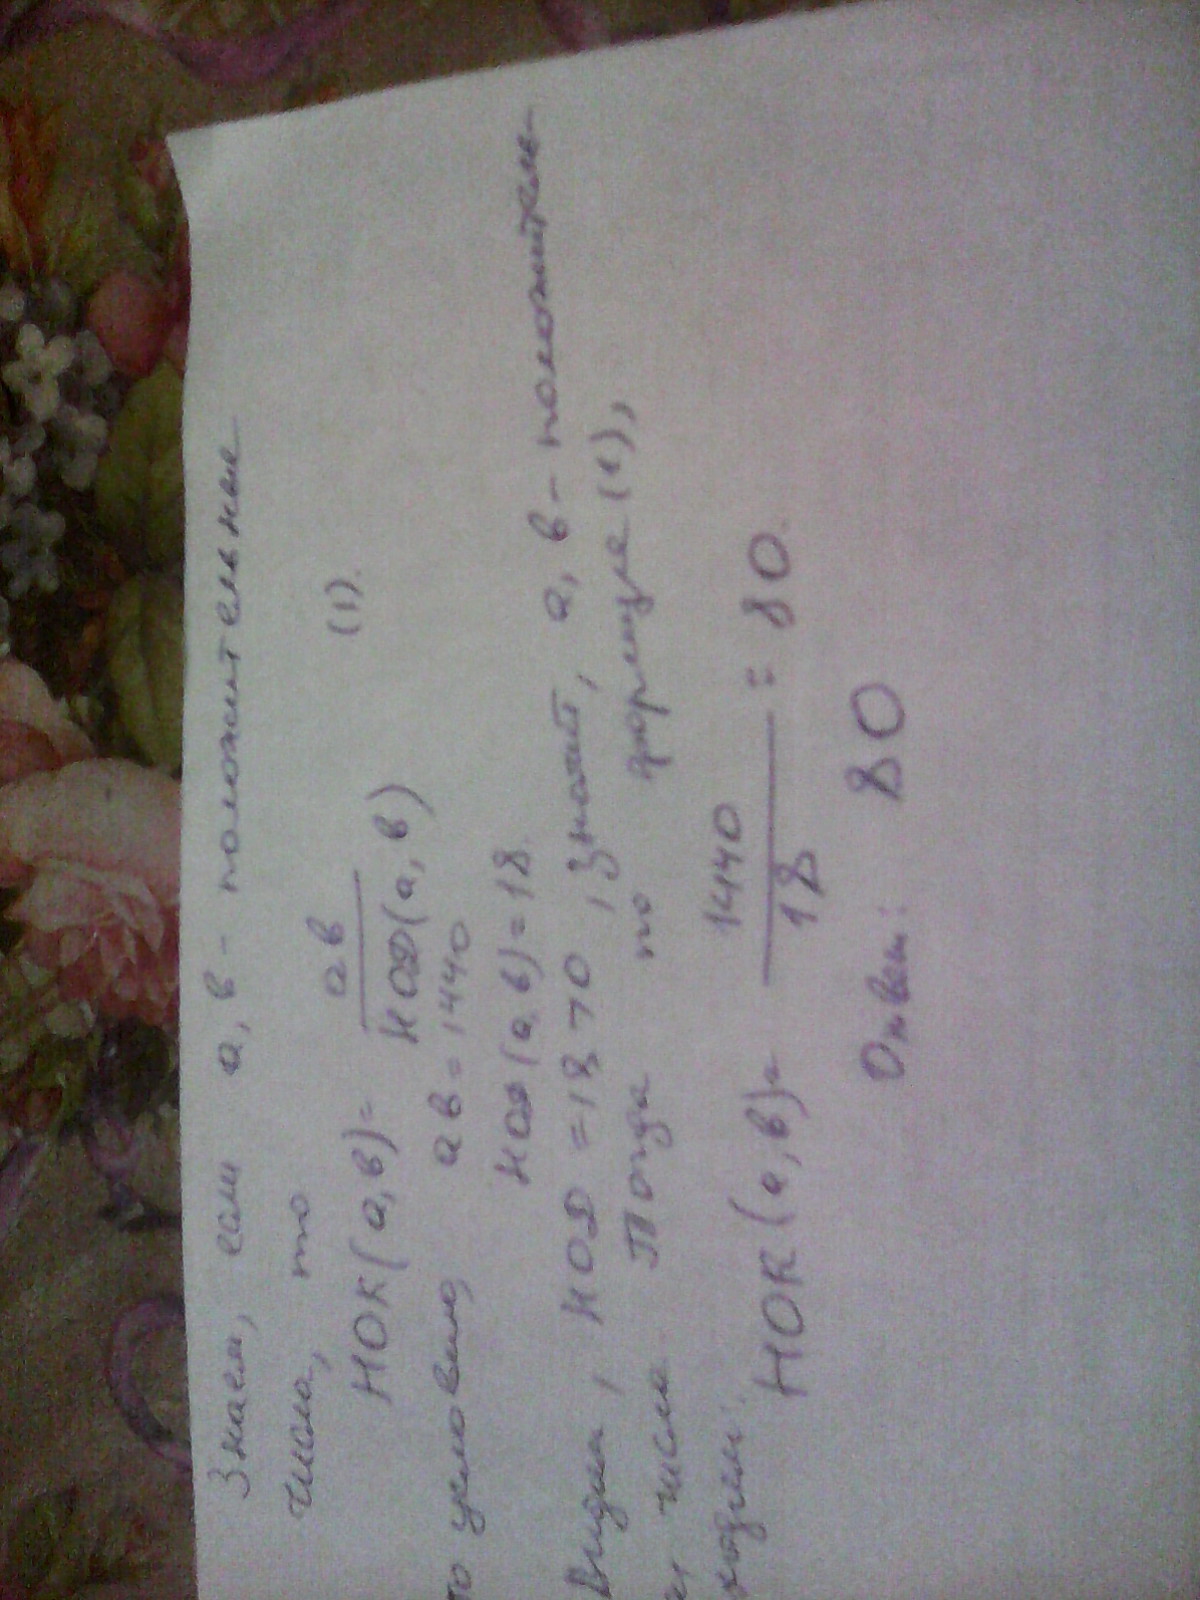 Знаем, если а, в - положительные
числа, то
НОК(а,в)= ав / НОД(а,в) (1).
по условию, ав = 1440
НОД(а,в)=18.
Видим, НОД =18>0, значит, а, в - положитель-
числа. Тогда по формуле (1),
ходим:
НОК(а,в)= 1440 / 18 = 80.
Ответ: 80